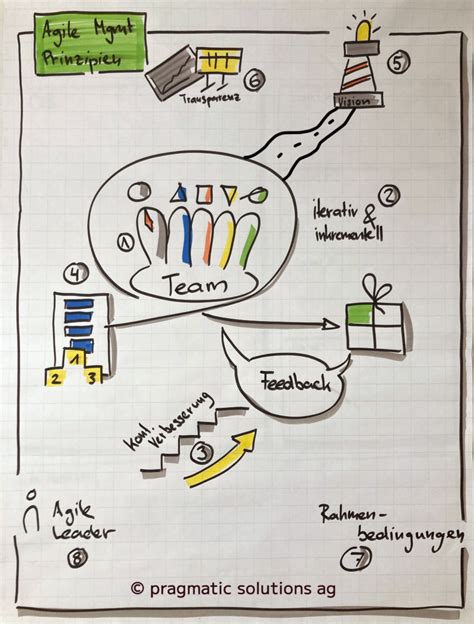 Agile Mgmt
Prinzipien
6
Transparenz
5
Vision
1
Team
2
iterativ &
inkrementell
4
1
2 3
Feedback
Konti.
Verbesserung
3
Agile
Leader
8
Rahmen-
bedingungen
7
© pragmatic solutions ag